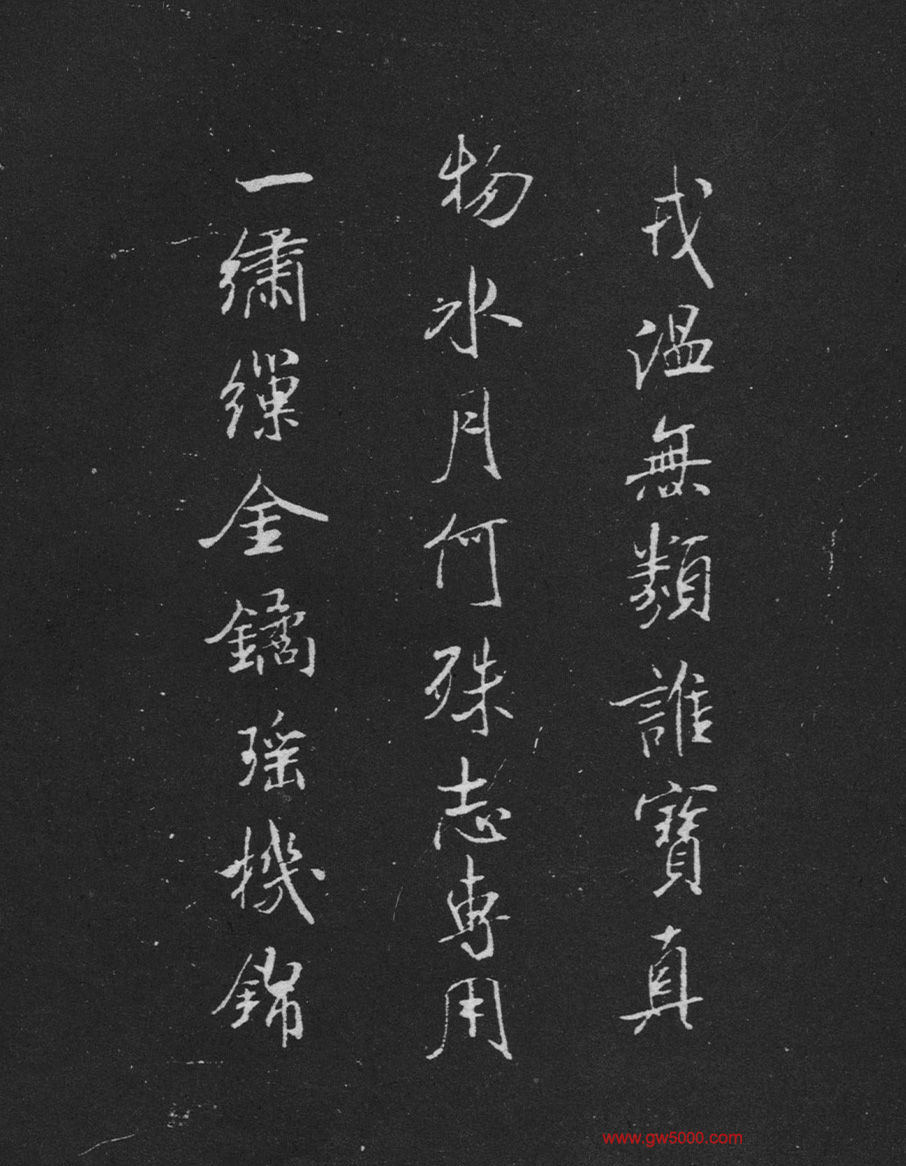 戎溫無類誰寶真
物水月何殊志專用
一繡繅金鐍瑤機錦
www.gw5000.com